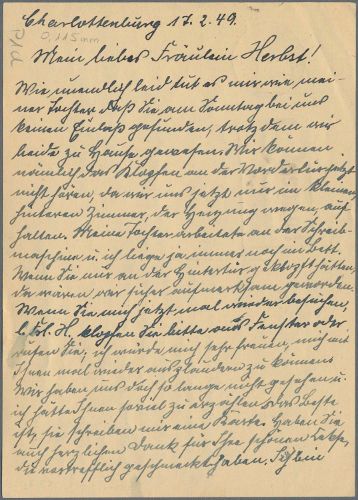 Charlottenburg 17.2.49.
0,115mm
Mein liebes Fräulein Herbst!
Wie unendlich leid tut es mir wie mei-
ner Tochter daß Sie am Sonntag bei uns
keinen Einlaß gefunden, trotzdem wir
beide zu Hause gewesen. Wir können
nämlich das Klopfen an der Vordertür jetzt
nicht hören, da wir uns jetzt nur im kleinen,
hinteren Zimmer, der Heizung wegen, auf-
halten. Meine Tochter arbeitete an der Schreib-
maschine u. ich liege ja immer noch im Bett.
Wenn Sie nur an der Hintertür geklopft hätten,
da wären wir sicher aufmerksam geworden.
Wenn Sie mich jetzt mal wieder besuchen,
l. Frl. H. klopfen Sie bitte ans Fenster oder
rufen Sie, ich würde mich sehr freuen, mich mit
Ihnen mal wieder ausplaudern zu können.
Wir haben uns doch so lange nicht gesehen u.
ich hätte Ihnen soviel zu erzählen. Das Beste
ist, sie schreiben mir eine Karte. Haben Sie
auch herzlichen Dank für Ihre schönen
die vortrefflich geschmeckt haben. Ich bin